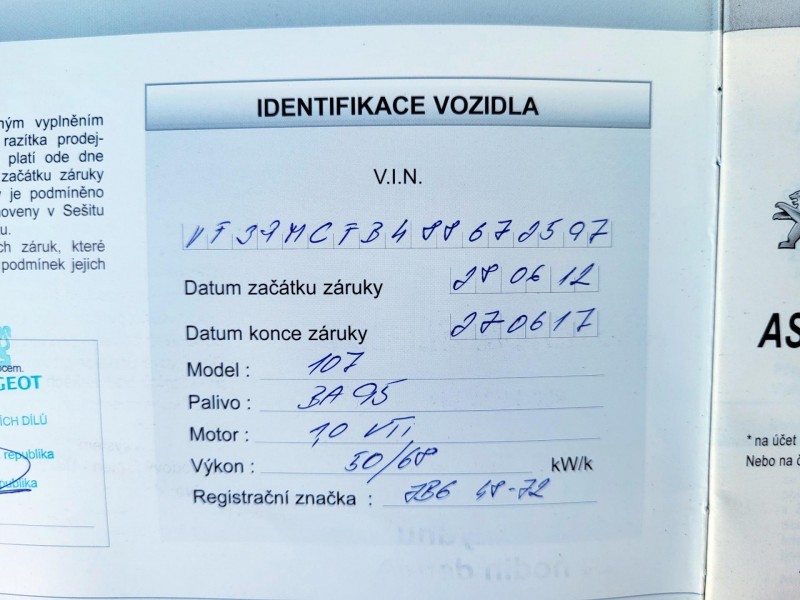 vyplněním
razítka prodej-
platí ode dne
začátku záruky
je podmíněno
v Sešitu
záruk, které
podmínek jejich
republika
IDENTIFIKACE VOZIDLA
V.I.N.
VF3PMCFB488672597
Datum začátku záruky 28 06 12
Datum konce záruky 27 06 17
Model : 107
Palivo : BA 95
Motor : 1,0 VTi
Výkon : 50/68 kW/k
Registrační značka : 7B6 48-72
* na účet
Nebo na